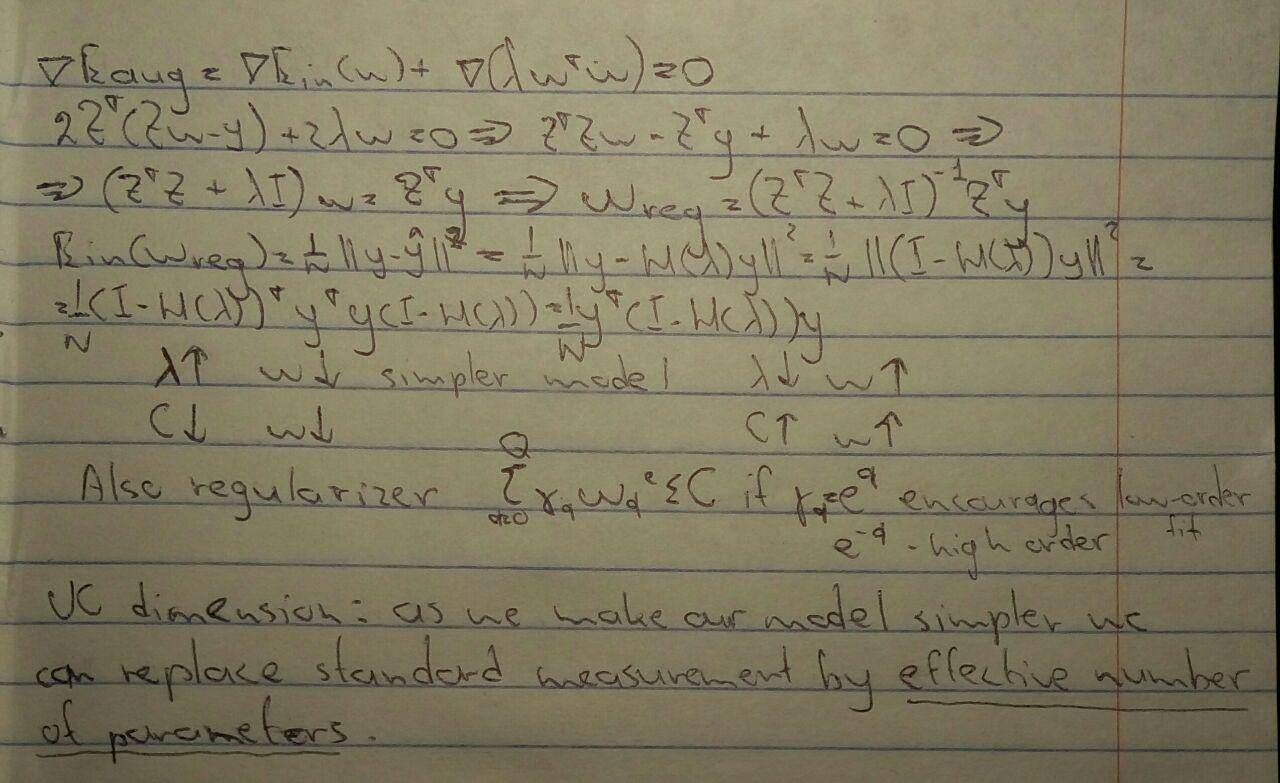 ∇Eaug = ∇Ein(w) + ∇(λwᵀw) = 0
2Zᵀ(Zw-y) + 2λw = 0 ⇒ ZᵀZw - Zᵀy + λw = 0 ⇒
⇒ (ZᵀZ + λI) w = Zᵀy ⇒ wreg = (ZᵀZ + λI)⁻¹Zᵀy
Ein(wreg) = 1/N ||y-ŷ||² = 1/N ||y - H(λ)y||² = 1/N ||(I - H(λ))y||² =
= 1/N (I - H(λ))ᵀ yᵀy(I - H(λ)) = 1/N yᵀ(I - H(λ))y
λ↑ w↓ simpler model λ↓ w↑
C↓ w↓ C↑ w↑
Also regularizer Σ_{q=0}^{Q} γq wq² ≤ C if γq = e^q encourages low-order fit
e^-q - high order
VC dimension: as we make our model simpler we
can replace standard measurement by effective number
of parameters.